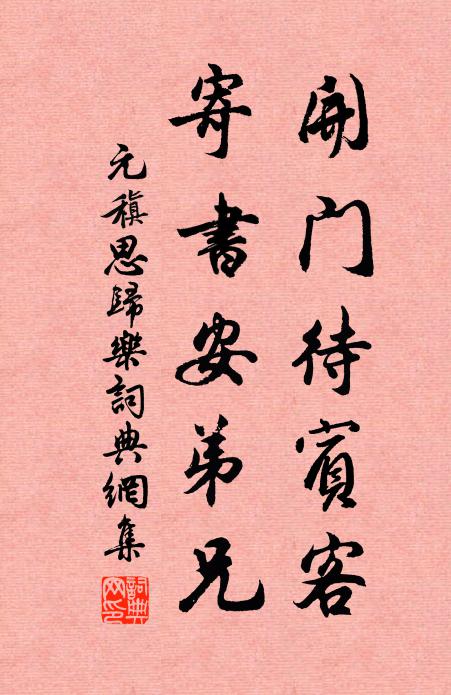 開門待賓客
寄書安弟兄
元稹思歸樂詞典網集
詞典網印